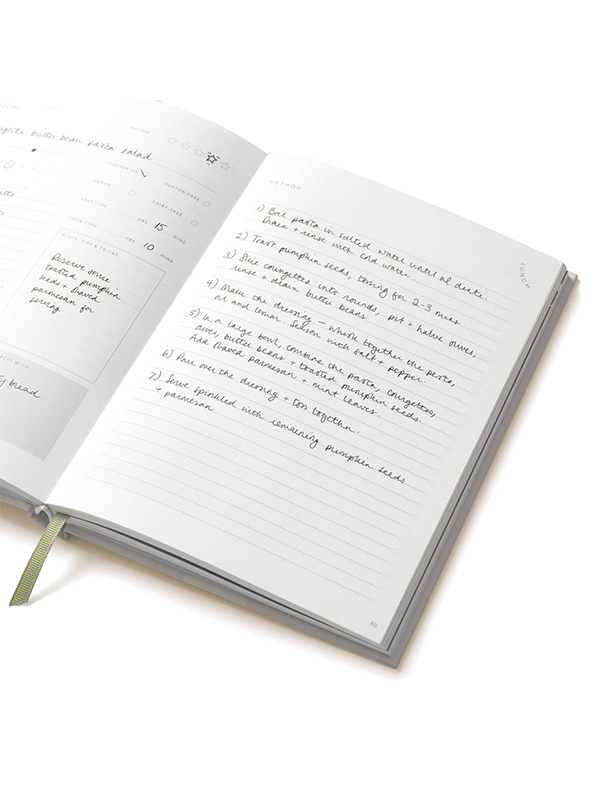 RECIPE
courgette butter bean pasta salad
RATING
VEGETARIAN
GLUTEN-FREE
VEGAN
DAIRY-FREE
PREP TIME
HRS 15 MINS
COOK TIME
HRS 10 MINS
HINTS, TIPS & TRICKS
Reserve some
toasted pumpkin
seeds + shaved
parmesan for
serving
EAT WITH
bread
METHOD
LUNCH
1) Boil pasta in salted water until al dente.
Drain + rinse with cold water.
2) Toast pumpkin seeds, tossing for 2-3 mins.
3) Slice courgettes into rounds, pit + halve olives,
rinse + drain butter beans
4) Make the dressing - whisk together the pesto,
oil and lemon. Season with salt + pepper.
5) In a large bowl, combine the pasta, courgettes,
olives, butter beans + toasted pumpkin seeds.
Add shaved parmesan + mint leaves.
6) Pour over the dressing + toss together.
7) Serve sprinkled with remaining pumpkin seeds
+ parmesan
69